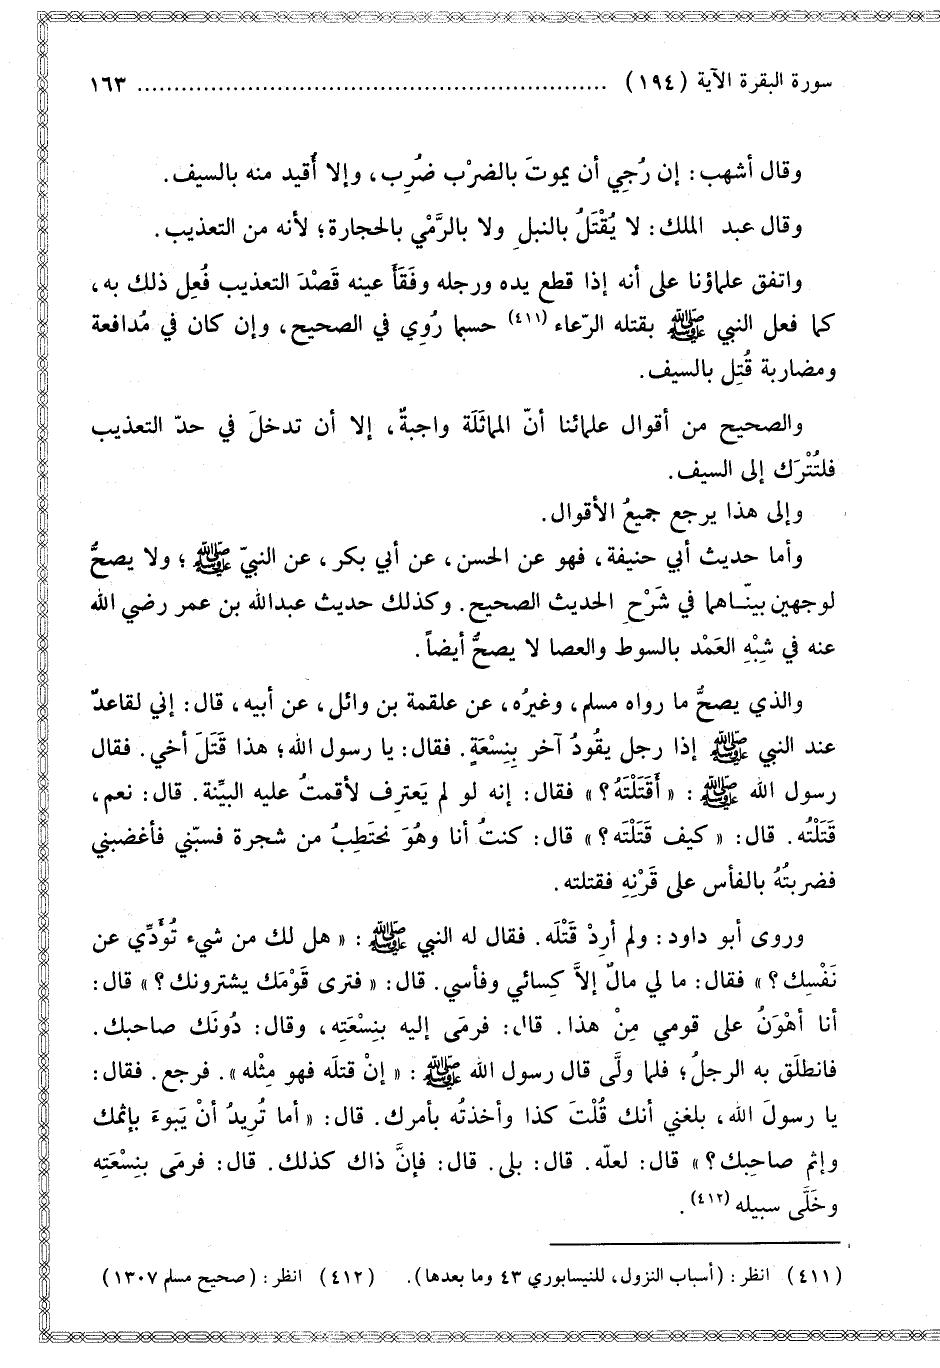 سورة البقرة الآية (١٩٤) ........................................................ ١٦٣
وقال أشهب: إن رُجِي أن يموتَ بالضرْب ضُرِب، وإلا أُقيد منه بالسيف.
وقال عبد الملك: لا يُقْتَلُ بالنبلِ ولا بالرَّمْي بالحجارة؛ لأنه من التعذيب.
واتفق علماؤنا على أنه إذا قطع يده ورجله وفَقَأَ عينه قَصْدَ التعذيب فُعِل ذلك به،
كما فعل النبي ﷺ بقتله الرّعاء (٤١١) حسبما رُوِي في الصحيح، وإن كان في مُدافعة
ومضاربة قُتِل بالسيف.
والصحيح من أقوال علمائنا أنّ المماثَلَة واجبةٌ، إلا أن تدخلَ في حدّ التعذيب
فلتُتْرَك إلى السيف.
وإلى هذا يرجع جميعُ الأقوال.
وأما حديث أبي حنيفة، فهو عن الحسن، عن أبي بكر، عن النبيّ ﷺ؛ ولا يصحُّ
لوجهين بيّناهما في شَرْحِ الحديث الصحيح. وكذلك حديث عبدالله بن عمر رضي الله
عنه في شِبْهِ العَمْد بالسوط والعصا لا يصحُّ أيضاً.
والذي يصحُّ ما رواه مسلم، وغيرُه، عن علقمة بن وائل، عن أبيه، قال: إني لقاعدٌ
عند النبي ﷺ إذا رجل يقُودُ آخر بِنِسْعَةٍ. فقال: يا رسول الله؛ هذا قَتَلَ أخي. فقال
رسول الله ﷺ: «أَقَتَلْتَهُ؟» فقال: إنه لو لم يَعترِف لأقمتُ عليه البيِّنة. قال: نعم،
قَتَلْتُه. قال: «كيف قَتَلْتَه؟» قال: كنتُ أنا وهُوَ نحتَطِبُ من شجرة فسبّني فأغضبني
فضربتُهُ بالفأس على قَرْنِهِ فقتلته.
وروى أبو داود: ولم أرِدْ قَتْلَه. فقال له النبي ﷺ: «هل لك من شيء تُؤَدِّي عن
نَفْسِك؟» فقال: ما لي مالٌ إلاَّ كِسائي وفأسي. قال: «فترى قَوْمَك يشترونك؟» قال:
أنا أهْوَنُ على قومي مِنْ هذا. قال: فرمَى إليه بنِسْعَتِه، وقال: دُونَك صاحبك.
فانطلَق به الرجلُ؛ فلما ولَّى قال رسول الله ﷺ: «إنْ قتلَه فهو مِثْله». فرجع. فقال:
يا رسولَ الله، بلغني أنك قُلْتَ كذا وأخذتُه بأمرك. قال: «أما تُرِيدُ أنْ يَبوءَ بإثمك
وإثم صاحِبك؟» قال: لعلّه. قال: بلى. قال: فإنَّ ذاك كذلك. قال: فرمَى بنِسْعَتِه
وخَلَّى سبيله (٤١٢).
(٤١١) انظر: (أسباب النزول، للنيسابوري ٤٣ وما بعدها). (٤١٢) انظر: (صحيح مسلم ١٣٠٧)